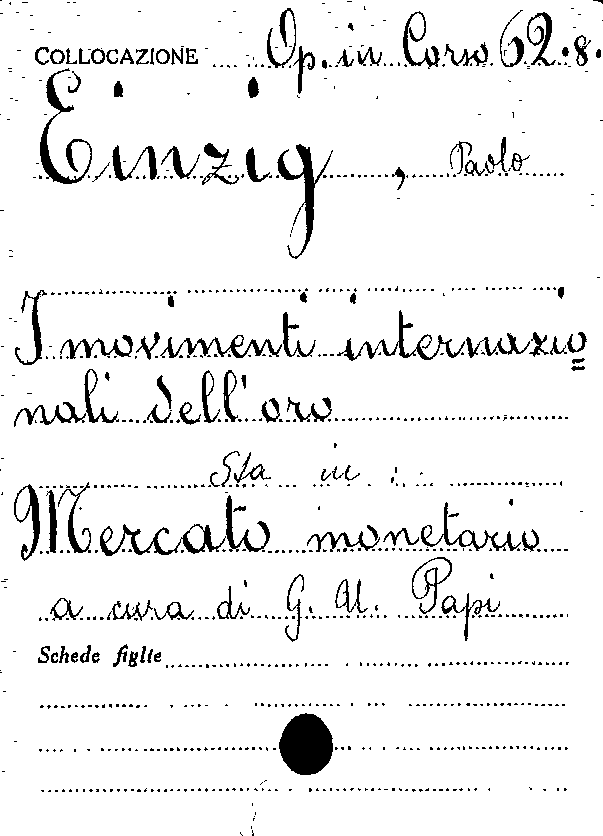 COLLOCAZIONE Op. in Corso 62.8.
Einzig, Paolo
I movimenti internazio=
nali dell'oro
Sta in:
Mercato monetario
a cura di G. U. Papi
Schede figlie